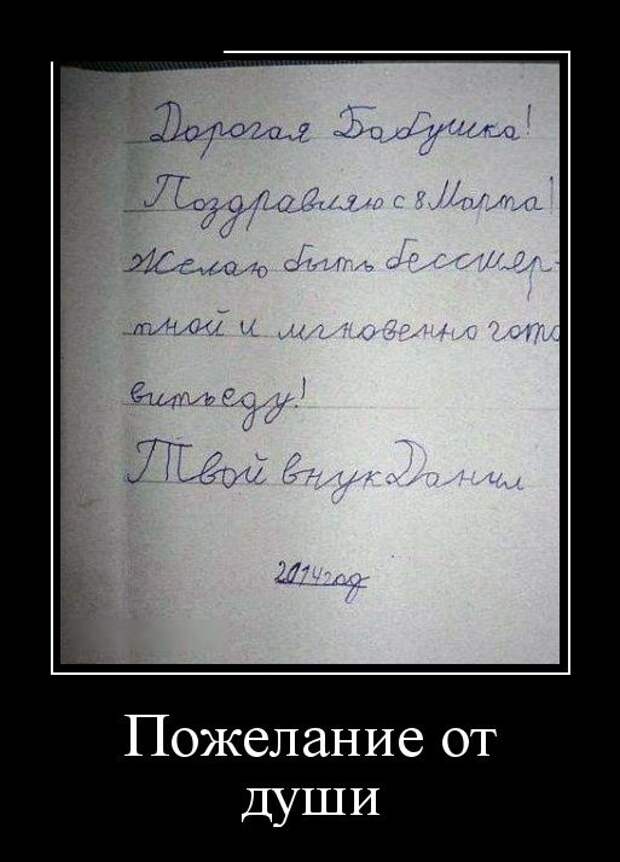 Дорогая Бабушка!
Поздравляю с 8 Марта!
Желаю быть бессмер-
тной и мгновенно гото
витьеду!
Твой внук Данил
2014 год
Пожелание от
души